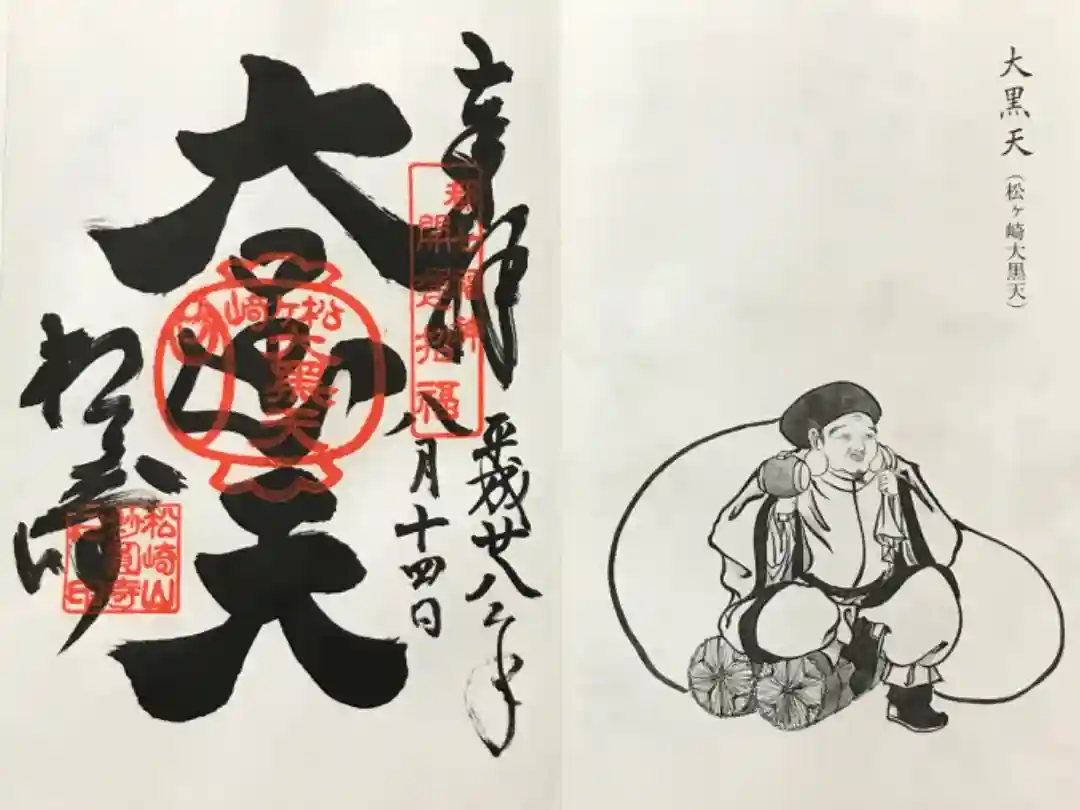 大黒天(松ヶ崎大黒天)
奉拝
平成廿八年
八月十四日
都七福神
開運招福
大黒天
松ヶ﨑
大黒天
松崎山
妙圓寺